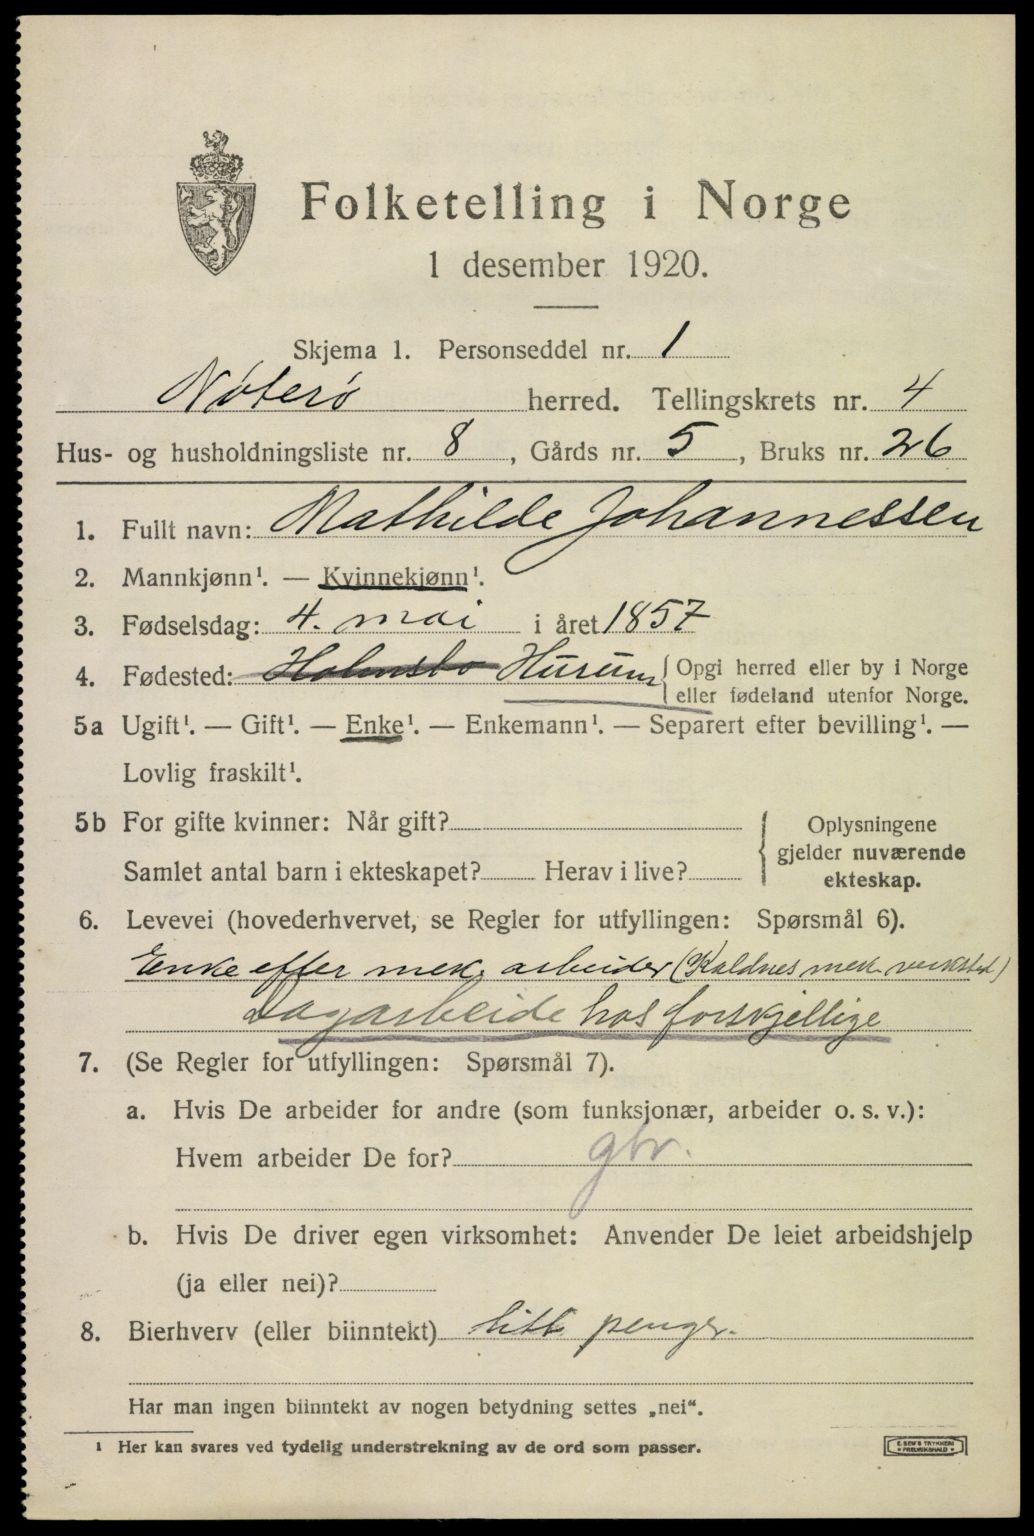 Folketelling i Norge
1 desember 1920.
Skjema 1. Personseddel nr. 1
Nøterø herred. Tellingskrets nr. 4
Hus- og husholdningsliste nr. 8, Gårds nr. 5, Bruks nr. 26
1. Fullt navn: Mathilde Johannessen
2. Mannkjønn¹. — Kvinnekjønn¹.
3. Fødselsdag: 4. mai i året 1857
4. Fødested: Holmsbo Hurum { Opgi herred eller by i Norge
eller fødeland utenfor Norge.
5a Ugift¹. — Gift¹. — Enke¹. — Enkemann¹. — Separert efter bevilling¹. —
Lovlig fraskilt¹.
5b For gifte kvinner: Når gift? { Oplysningene
gjelder nuværende
Samlet antal barn i ekteskapet? Herav i live?
ekteskap.
6. Levevei (hovederhvervet, se Regler for utfyllingen: Spørsmål 6).
Enke efter mek. arbeider (Kaldnes mek. verksted)
Dagarbeide hos forskjellige
7. (Se Regler for utfyllingen: Spørsmål 7).
a. Hvis De arbeider for andre (som funksjonær, arbeider o. s. v.):
Hvem arbeider De for? gbr.
b. Hvis De driver egen virksomhet: Anvender De leiet arbeidshjelp
(ja eller nei)?
8. Bierhverv (eller biinntekt) litt penger.
Har man ingen biinntekt av nogen betydning settes „nei“.
¹ Her kan svares ved tydelig understrekning av de ord som passer.
E. SEM'S TRYKKERI
• FREDRIKSHALD •